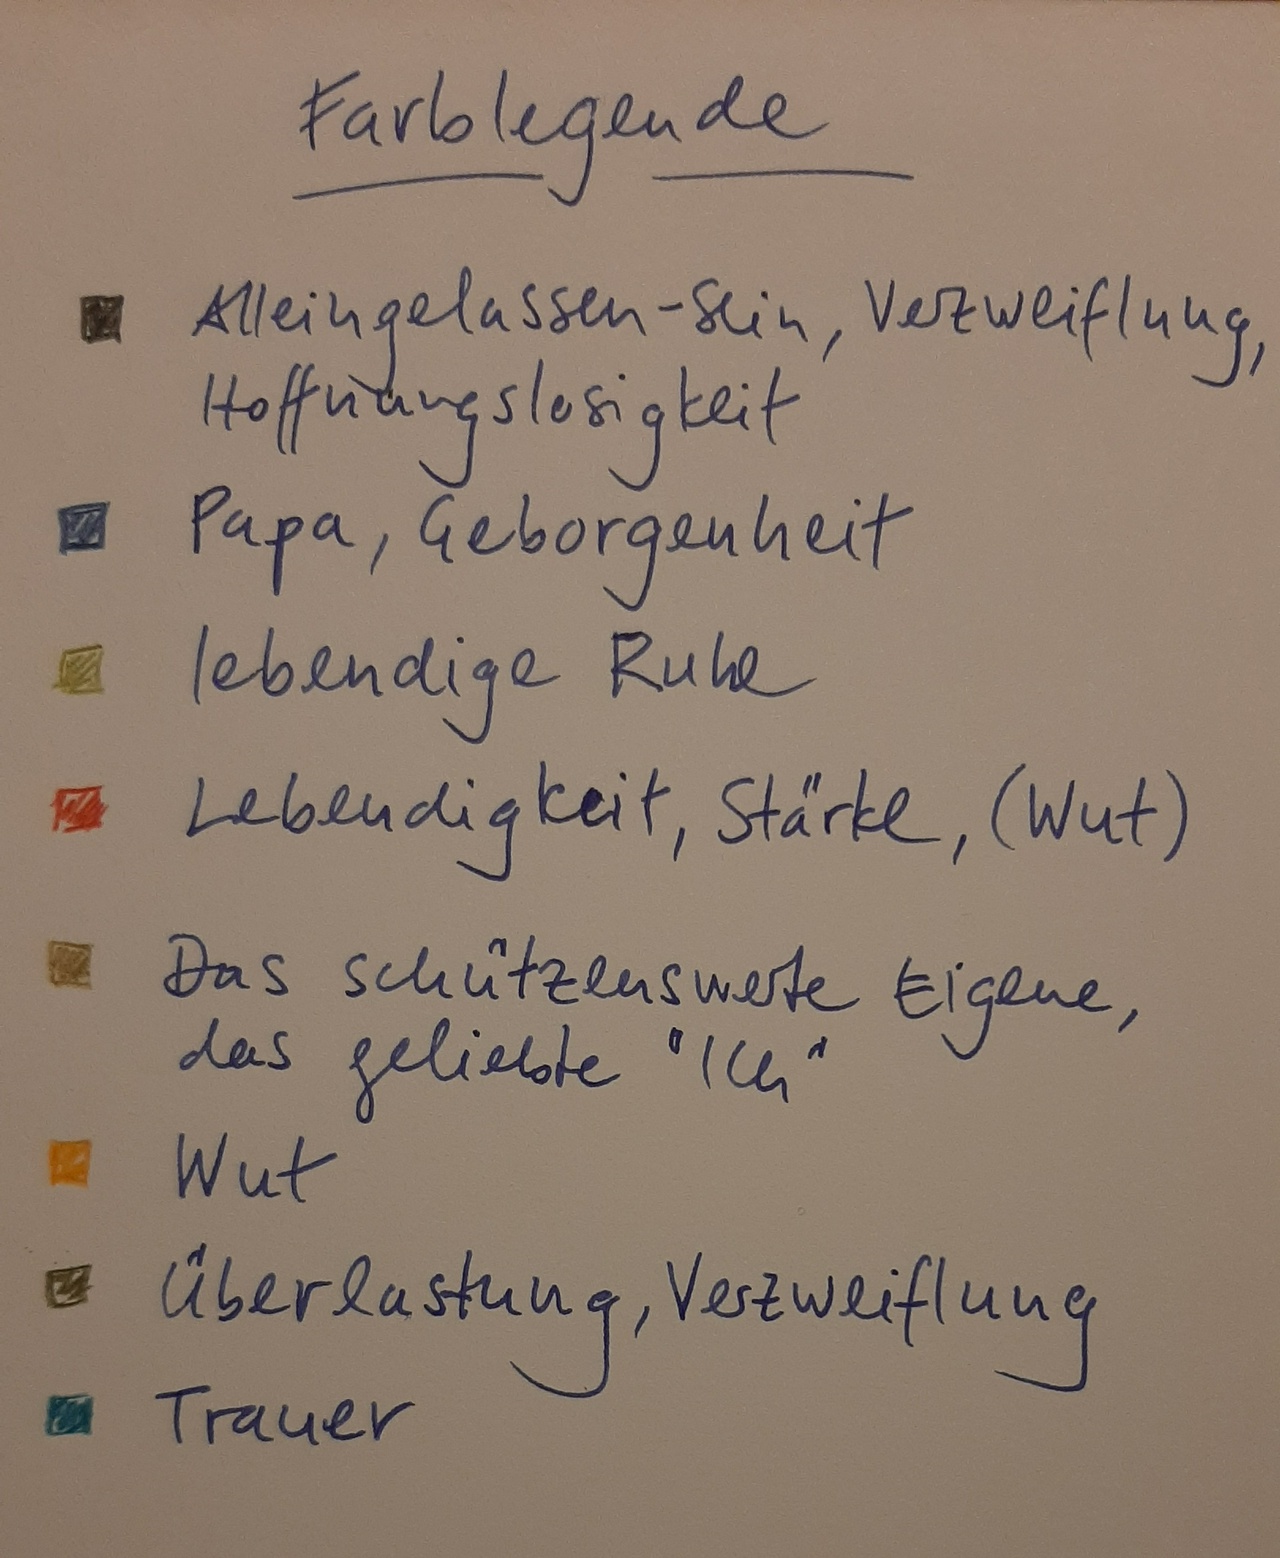 Farblegende
Alleingelassen-Sein, Verzweiflung,
Hoffnungslosigkeit
Papa, Geborgenheit
lebendige Ruhe
Lebendigkeit, Stärke, (Wut)
Das schützenswerte Eigene,
das geliebte "Ich"
Wut
Überlastung, Verzweiflung
Trauer